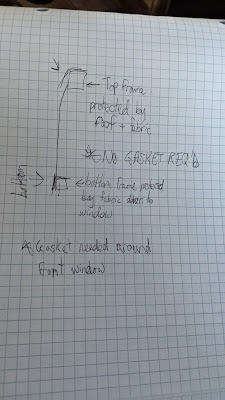 ← Top Frame
protected by
Roof + fabric
* NO GASKET REQ'D
bottom
← bottom frame protected
by fabric down to
window
* Gasket needed around
front window